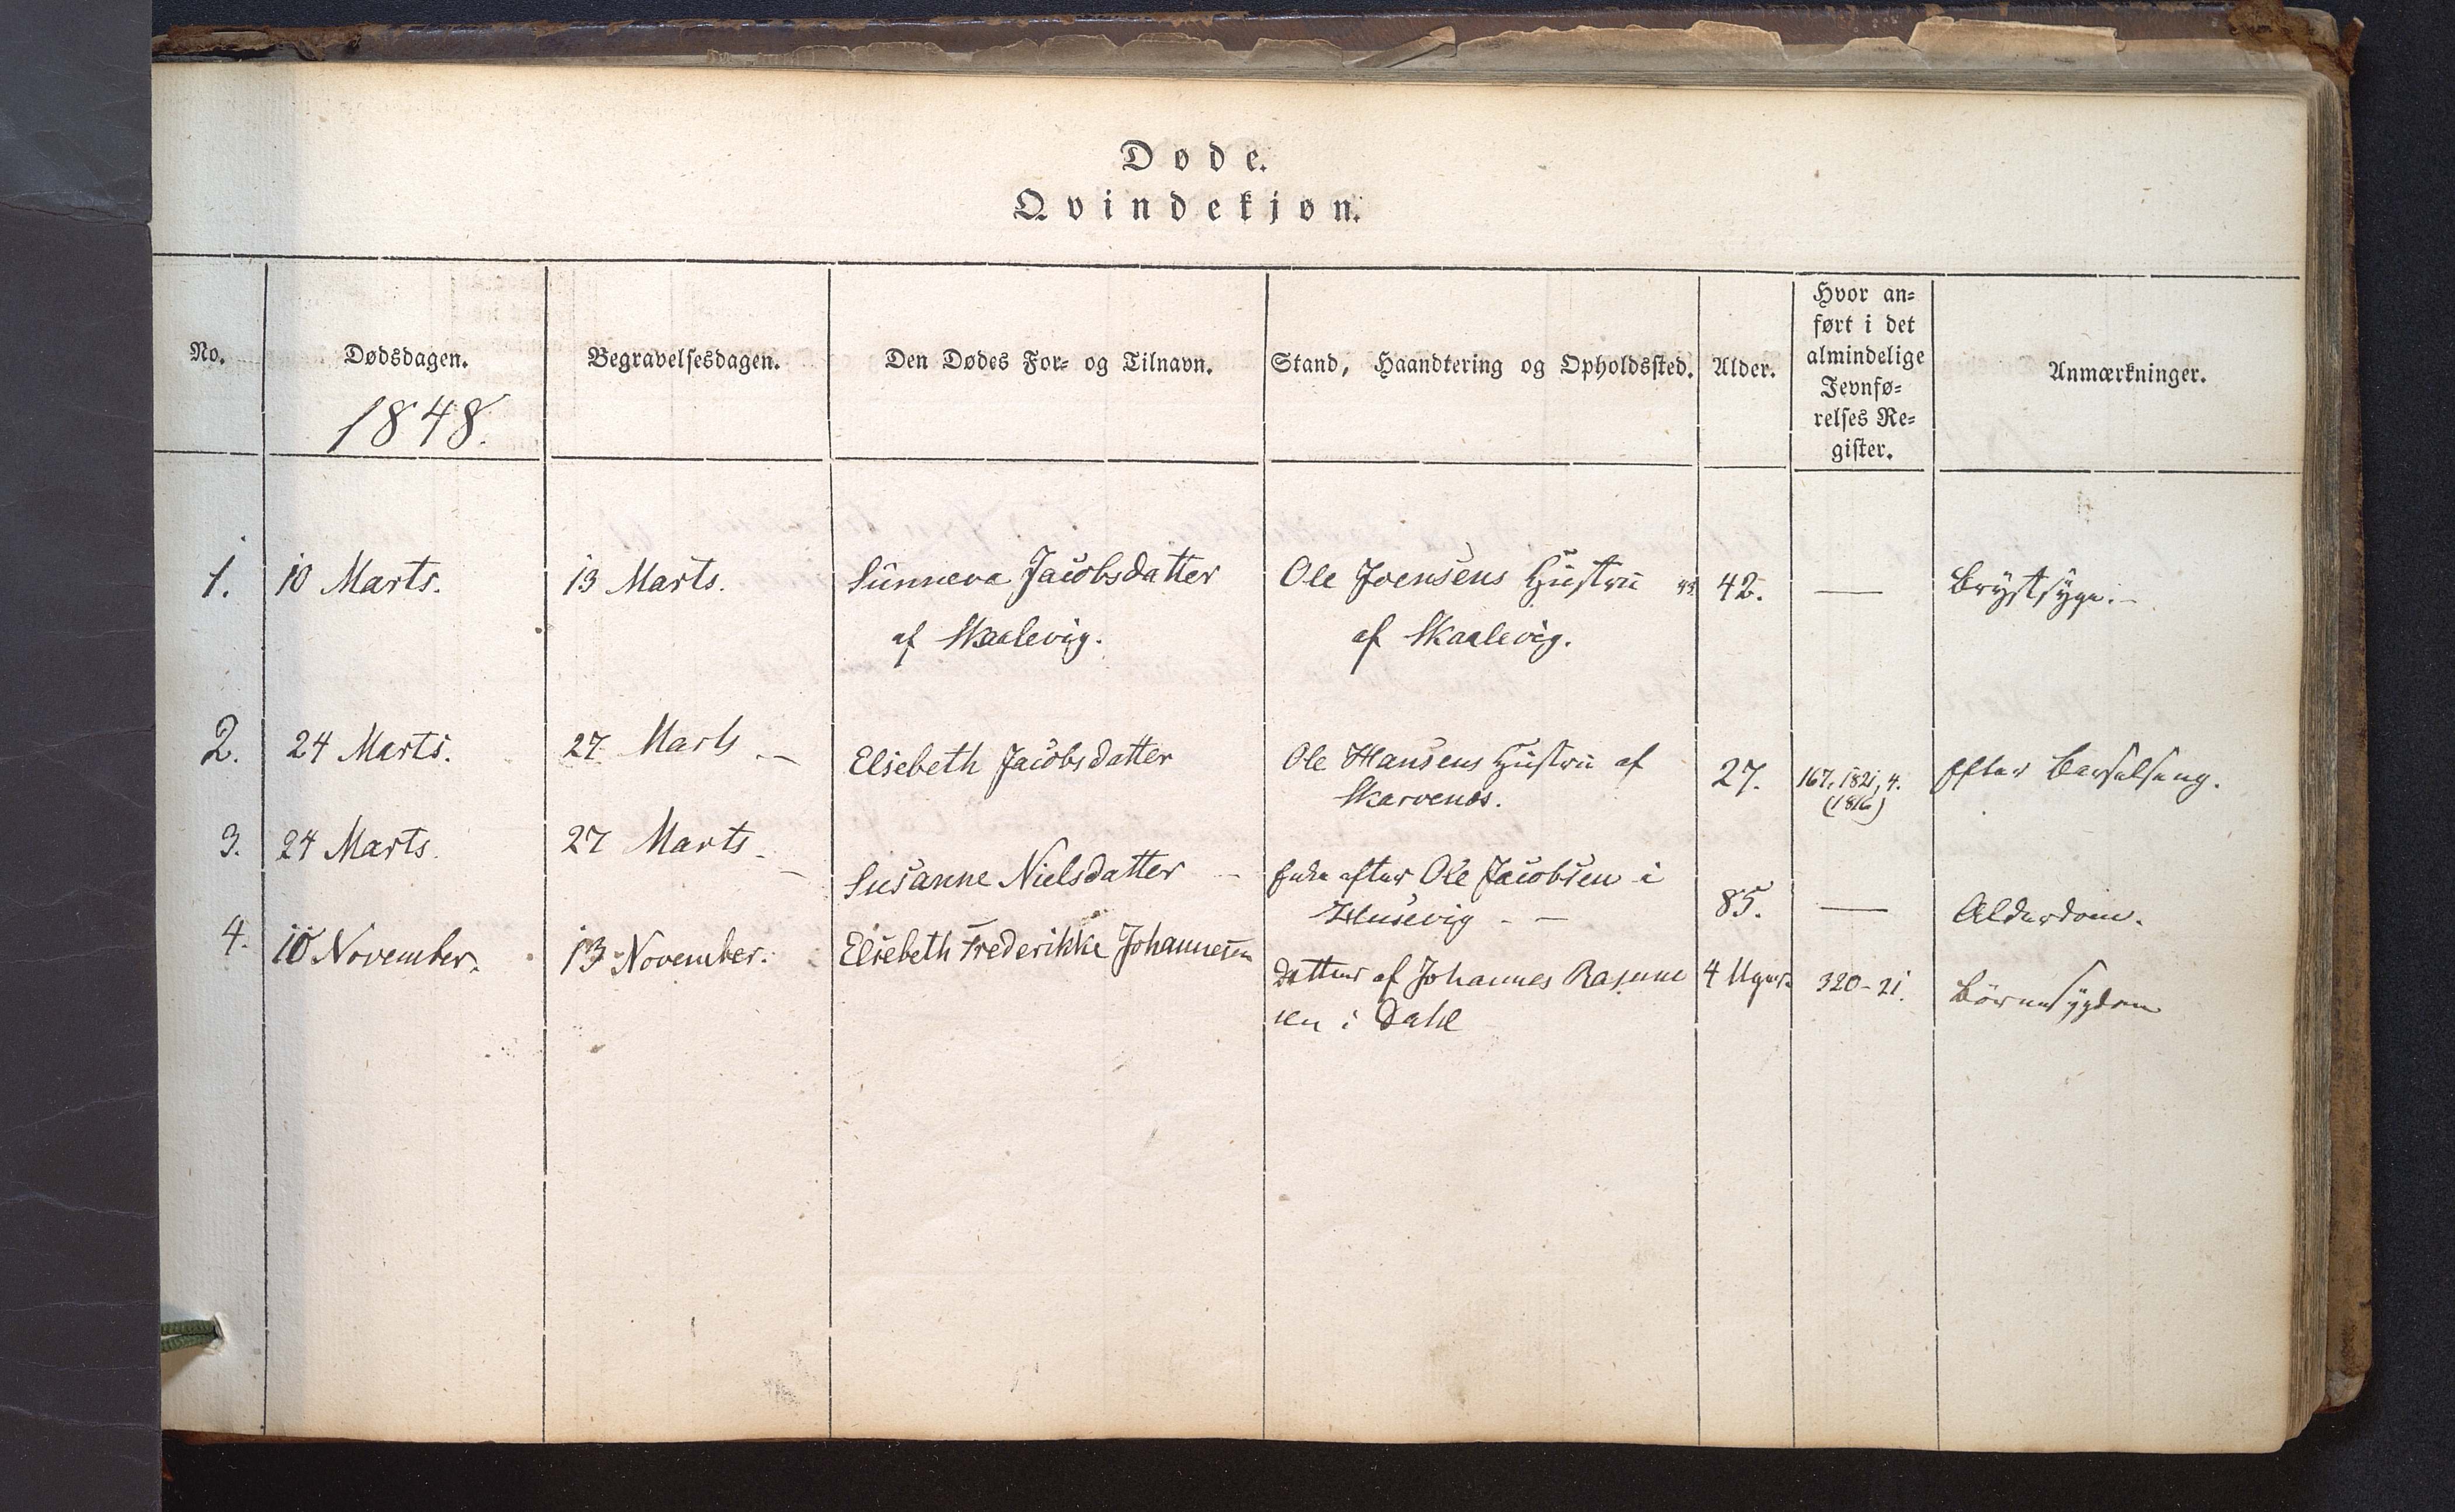 Døde.
Qvindekjøn.
No.
Dødsdagen.
1848.
Begravelsesdagen.
Den Dødes For- og Tilnavn.
Stand, Haandtering og Opholdssted.
Alder.
Hvor an=
ført i det
almindelige
Jevnfø=
relses Re=
gister.
Anmærkninger.
1. 10 Marts. 13 Marts. Sunneva Jacobsdatter Ole Joensens Hustru 42. — Brystsyge.
af Skaalevig. af Skaalevig.
2. 24 Marts. 27 Marts — Elsebeth Jacobsdatter Ole Hansens Hustru af 27. 167. 1821, 4. Efter Barselseng.
Skarvenæs. (1816)
3. 24 Marts. 27 Marts — Susanne Nielsdatter — Enke efter Ole Jacobsen i 85. — Alderdom.
Husevig — —
4. 10 November. 13 November. Elsebeth Frederikke Johannesen Datter af Johannes Rasmu 4 Uger. 320-21. Börnesygdom
sen i Dahl